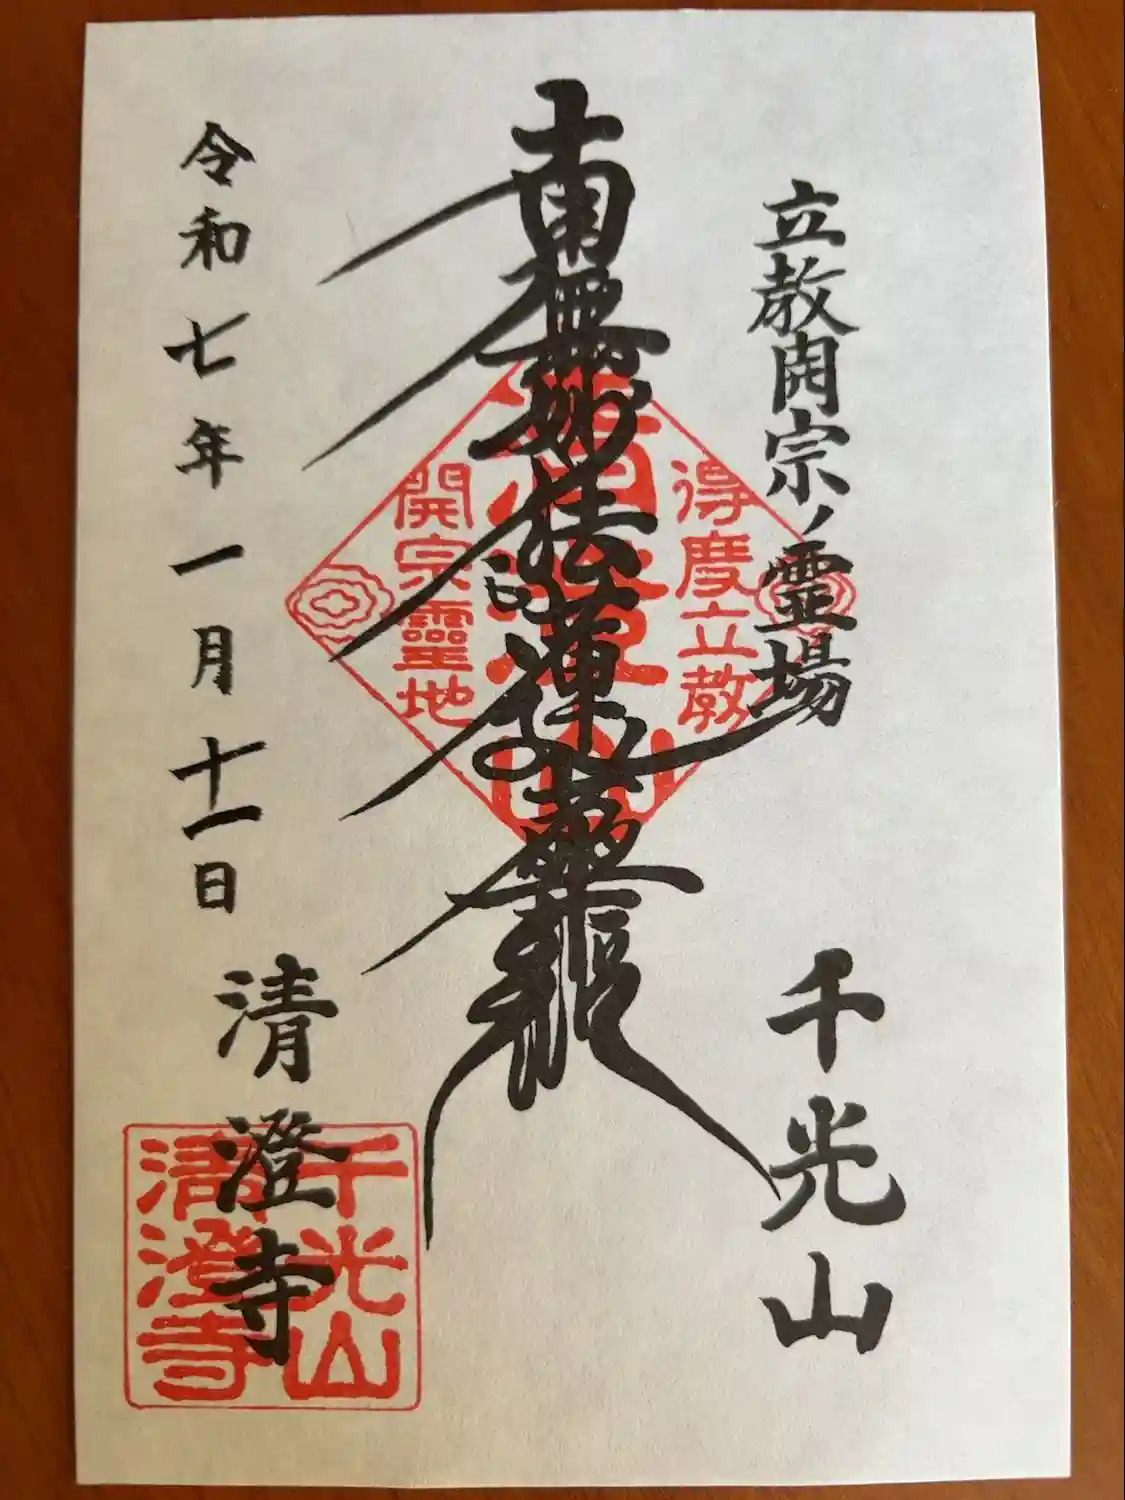 立教開宗ノ霊場
千光山
得度立教
清澄山
開宗靈地
南無妙法蓮華経
令和七年一月十一日
清澄寺
千光山
清澄寺